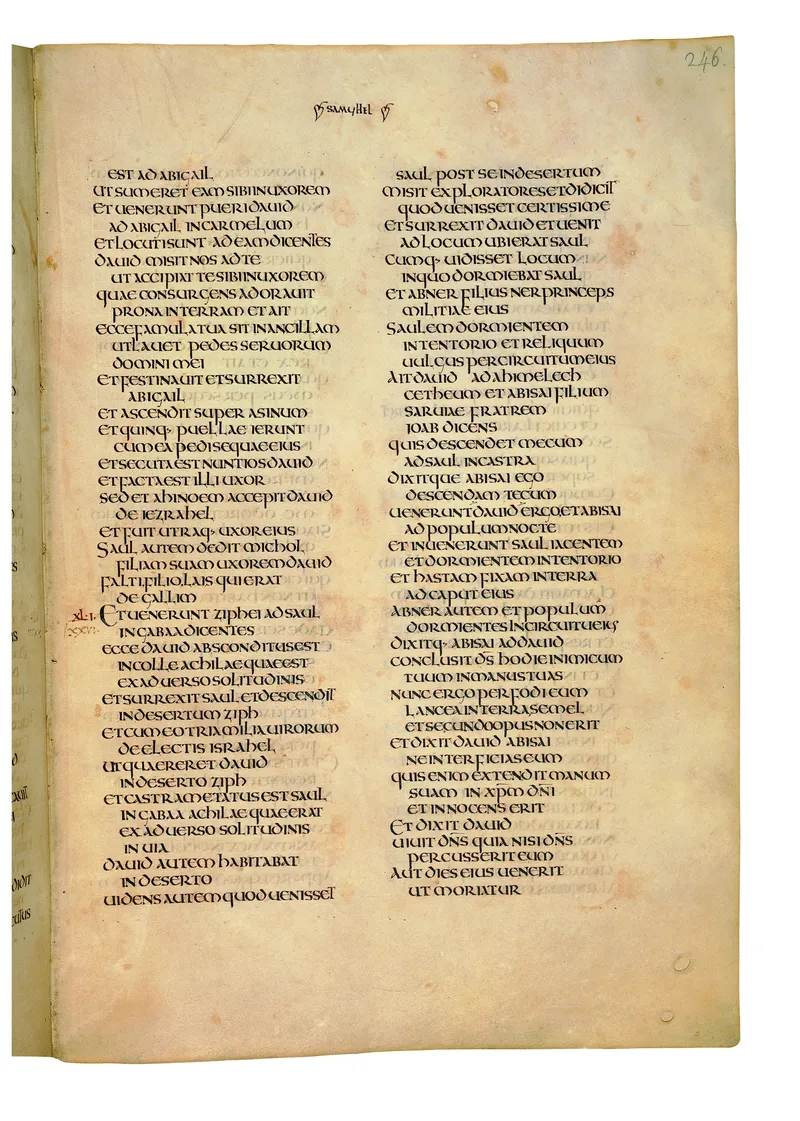 246.
SAMUHEL
EST AD ABIGAIL
UT SUMERET EAM SIBI IN UXOREM
ET UENERUNT PUERI DAUID
AD ABIGAIL IN CARMELUM
ET LOCUTI SUNT AD EAM DICENTES
DAUID MISIT NOS AD TE
UT ACCIPIAT TE SIBI IN UXOREM
QUAE CONSURGENS ADORAUIT
PRONA IN TERRAM ET AIT
ECCE FAMULA TUA SIT IN ANCILLAM
UT LAUET PEDES SERUORUM
DOMINI MEI
ET FESTINAUIT ET SURREXIT
ABIGAIL
ET ASCENDIT SUPER ASINUM
ET QUINQ· PUELLAE IERUNT
CUM EA PEDISEQUAE EIUS
ET SECUTA EST NUNTIOS DAUID
ET FACTA EST ILLI UXOR
SED ET AHINOEM ACCEPIT DAUID
DE IEZRAHEL
ET FUIT UTRAQ· UXOR EIUS
SAUL AUTEM DEDIT MICHOL
FILIAM SUAM UXOREM DAUID
FALTI, FILIO, LAIS QUI ERAT
DE GALLIM
XLI. ET UENERUNT ZIPHEI AD SAUL
XXVI· IN GABAA DICENTES
ECCE DAUID ABSCONDITUS EST
IN COLLE ACHILAE QUAE EST
EX ADUERSO SOLITUDINIS
ET SURREXIT SAUL ET DESCENDIT
IN DESERTUM ZIPH
ET CUM EO TRIA MILIA UIRORUM
DE ELECTIS ISRAHEL
UT QUAERERET DAUID
IN DESERTO ZIPH
ET CASTRAMETATUS EST SAUL
IN GABAA ACHILAE QUAE ERAT
EX ADUERSO SOLITUDINIS
IN UIA
DAUID AUTEM HABITABAT
IN DESERTO
UIDENS AUTEM QUOD UENISSET
SAUL POST SE IN DESERTUM
MISIT EXPLORATORES ET DIDICIT
QUOD UENISSET CERTISSIME
ET SURREXIT DAUID ET UENIT
AD LOCUM UBI ERAT SAUL
CUMQ· UIDISSET LOCUM
IN QUO DORMIEBAT SAUL
ET ABNER FILIUS NER PRINCEPS
MILITIAE EIUS
SAULEM DORMIENTEM
IN TENTORIO ET RELIQUUM
UULGUS PER CIRCUITUM EIUS
AIT DAUID AD AHIMELECH
CETHEUM ET ABISAI FILIUM
SARUIAE FRATREM
IOAB DICENS
QUIS DESCENDET MECUM
AD SAUL IN CASTRA
DIXITQUE ABISAI EGO
DESCENDAM TECUM
UENERUNT DAUID ERGO ET ABISAI
AD POPULUM NOCTE
ET INUENERUNT SAUL IACENTEM
ET DORMIENTEM IN TENTORIO
ET HASTAM FIXAM IN TERRA
AD CAPUT EIUS
ABNER AUTEM ET POPULUM
DORMIENTES IN CIRCUITU EIUS
DIXITQ· ABISAI AD DAUID
CONCLUSIT D̄S HODIE INIMICUM
TUUM IN MANUS TUAS
NUNC ERGO PERFODI EUM
LANCEA IN TERRA SEMEL
ET SECUNDO OPUS NON ERIT
ET DIXIT DAUID ABISAI
NE INTERFICIAS EUM
QUIS ENIM EXTENDIT MANUM
SUAM IN XP̄M DN̄I
ET INNOCENS ERIT
ET DIXIT DAUID
UIUIT DN̄S QUIA NISI DN̄S
PERCUSSERIT EUM
AUT DIES EIUS UENERIT
UT MORIATUR